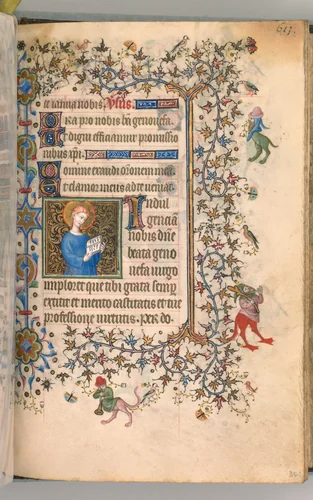 et ianua nobis Vſus.
Ora pro nobis bt̄a genoueſa.
Ut digni efficiamur promiſſio
nibus xp̄i.
Domine exaudi or̄onem mea
et clamor meus ad te veniat.
Indul
genciā
nobis dn̄e
beata geno
uefa virgo
imploret que tibi grata ſemp̄
extitit et merito caſtitatis et tue
profeſſione virtutis. Per do.